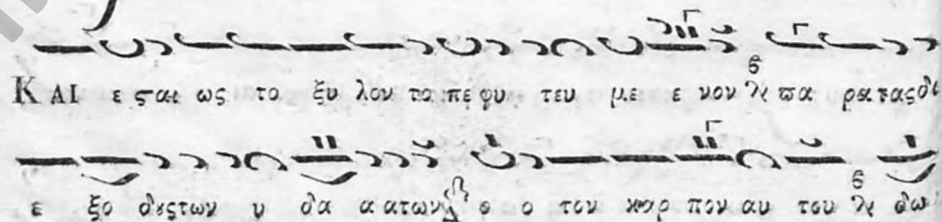 ΚΑΙ ε σται ως το ξυ λον το πε φυ τευ με ε νον πα ρα τας δι
ε ξο δους των υ δα α ατων ο ο τον καρ πον αυ του δω